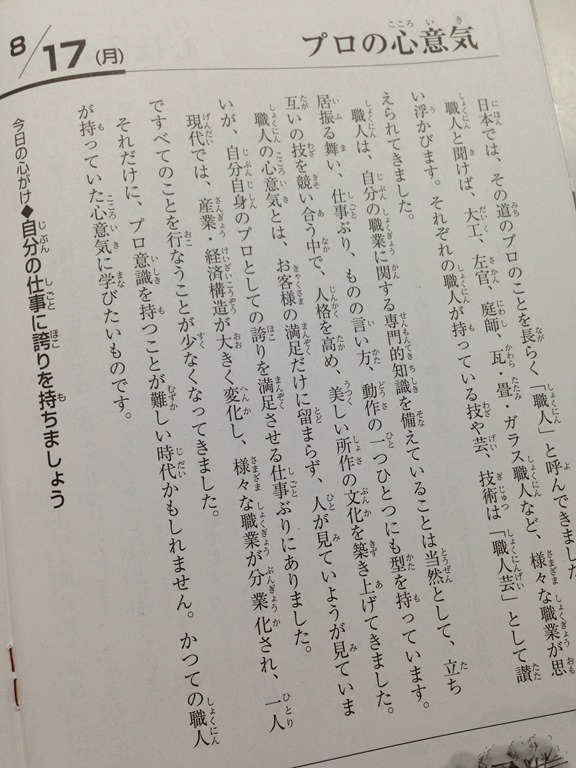 8/17(月)
プロの心意気
日本では、その道のプロのことを長らく「職人」と呼んできました
職人と聞けば、大工、左官、庭師、瓦・畳・ガラス職人など、様々な職業が思
い浮かびます。それぞれの職人が持っている技や芸、技術は「職人芸」として讃
えられてきました。
職人は、自分の職業に関する専門的知識を備えていることは当然として、立ち
居振る舞い、仕事ぶり、ものの言い方、動作の一つひとつにも型を持っています。
互いの技を競い合う中で、人格を高め、美しい所作の文化を築き上げてきました。
職人の心意気とは、お客様の満足だけに留まらず、人が見ていようが見ていま
いが、自分自身のプロとしての誇りを満足させる仕事ぶりにありました。
現代では、産業・経済構造が大きく変化し、様々な職業が分業化され、一人
ですべてのことを行なうことが少なくなってきました。
それだけに、プロ意識を持つことが難しい時代かもしれません。かつての職人
が持っていた心意気に学びたいものです。
今日の心がけ◆自分の仕事に誇りを持ちましょう